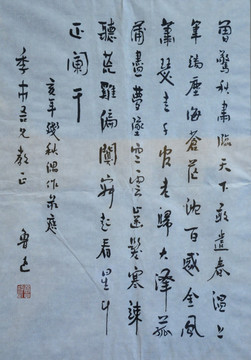 曾驚秋肅臨天下敢遣春溫上
筆端塵海蒼茫沈百感金風
蕭瑟走千官老歸大澤菰
蒲盡夢墜空雲齒髮寒竦
聽荒雞偏闃寂起看星斗
正闌干
亥年殘秋偶作錄應
季市吾兄教正
魯迅